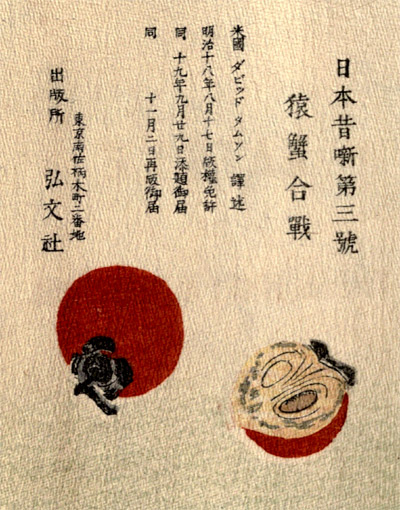 日本昔噺第三號
猿蟹合戰
米國 ダビッド タムソン 譯述
明治十八年八月十七日版權免許
同 十九年九月廿九日添題御届
同 十一月二日再版御届
東京南佐柄木町二番地
出版所 弘文社